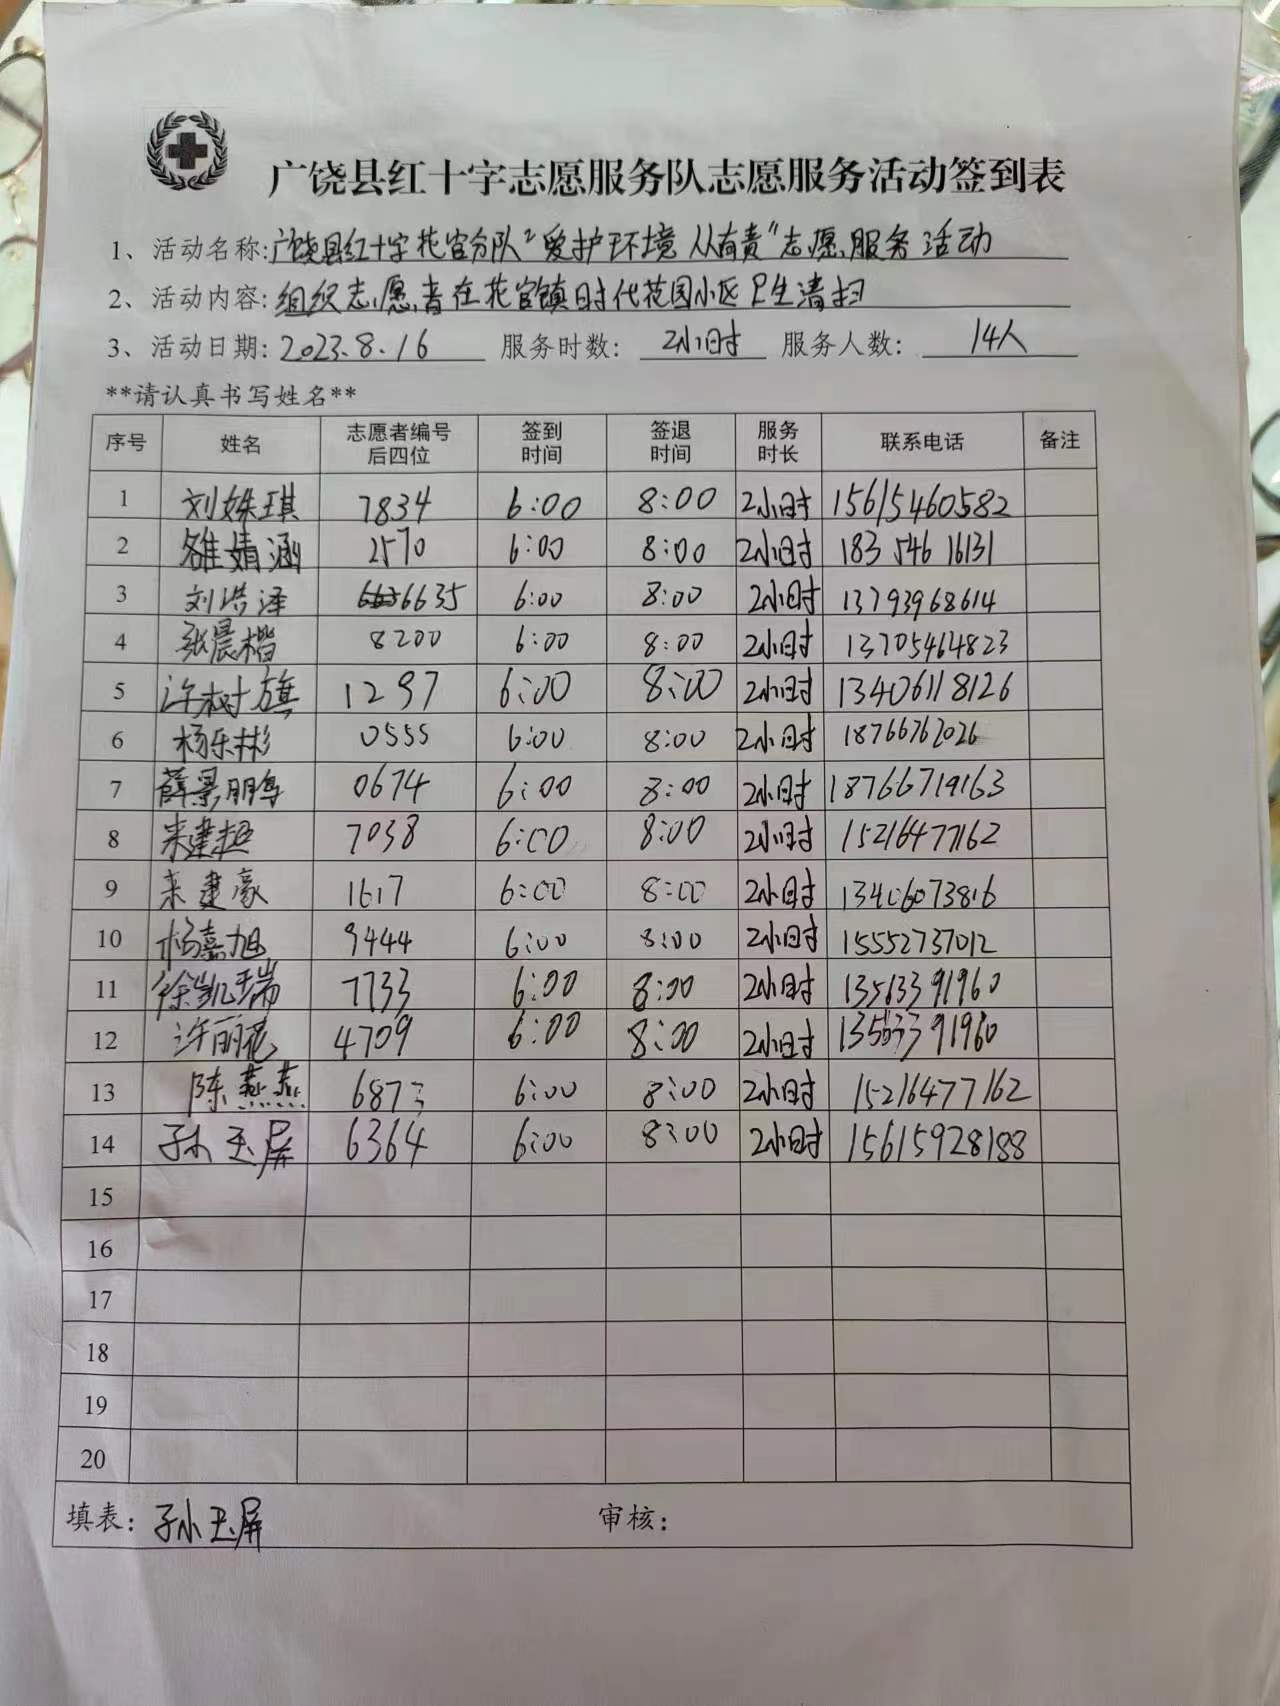 广饶县红十字志愿服务队志愿服务活动签到表
1、活动名称:广饶县红十字花官分队“爱护环境 人人有责”志愿服务活动
2、活动内容:组织志愿者在花官镇时代花园小区卫生清扫
3、活动日期:2023.8.16 服务时数: 2小时 服务人数: 14人
**请认真书写姓名**
序号 姓名 志愿者编号后四位 签到时间 签退时间 服务时长 联系电话 备注
1 刘姝琪 7834 6:00 8:00 2小时 15615460582
2 雒婧涵 2570 6:00 8:00 2小时 18354616131
3 刘浩泽 6635 6:00 8:00 2小时 13793968614
4 张晨楷 8200 6:00 8:00 2小时 13705464823
5 许树旗 1297 6:00 8:00 2小时 13406118126
6 杨乐彬 0555 6:00 8:00 2小时 18766762026
7 薛景鹏 0674 6:00 8:00 2小时 18766719163
8 来建 7038 6:00 8:00 2小时 15216477162
9 来建豪 1617 6:00 8:00 2小时 13406073816
10 杨嘉旭 9444 6:00 8:00 2小时 15552737012
11 徐凯瑞 7733 6:00 8:00 2小时 13563391960
12 许丽花 4709 6:00 8:00 2小时 13563391960
13 陈燕燕 6873 6:00 8:00 2小时 15216477162
14 孙玉屏 6364 6:00 8:00 2小时 15615928188
15
16
17
18
19
20
填表: 孙玉屏 审核: